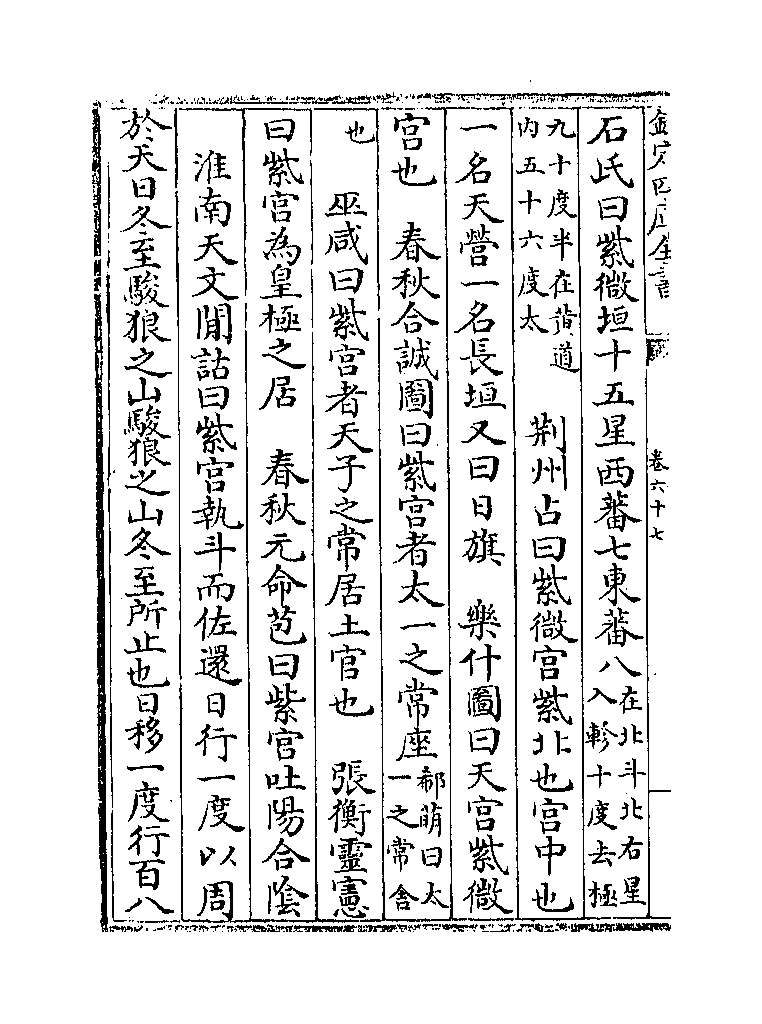 欽定四庫全書　卷六十七
石氏曰紫微垣十五星西蕃七東蕃八在北斗北右星入軫十度去極
九十度半在黃道內五十六度太　荆州占曰紫微宫紫北也宫中也
一名天營一名長垣又曰日旗　樂什圖曰天宫紫微
宫也　春秋合誠圖曰紫宫者太一之常座郗萌曰太一之常舍
也　巫咸曰紫宫者天子之常居土官也　張衡靈憲
曰紫宫為皇極之居　春秋元命苞曰紫宫吐陽合隂
淮南天文閒詁曰紫宫執斗而佐還日行一度以周
於天日冬至駿狼之山駿狼之山冬至所止也日移一度行百八